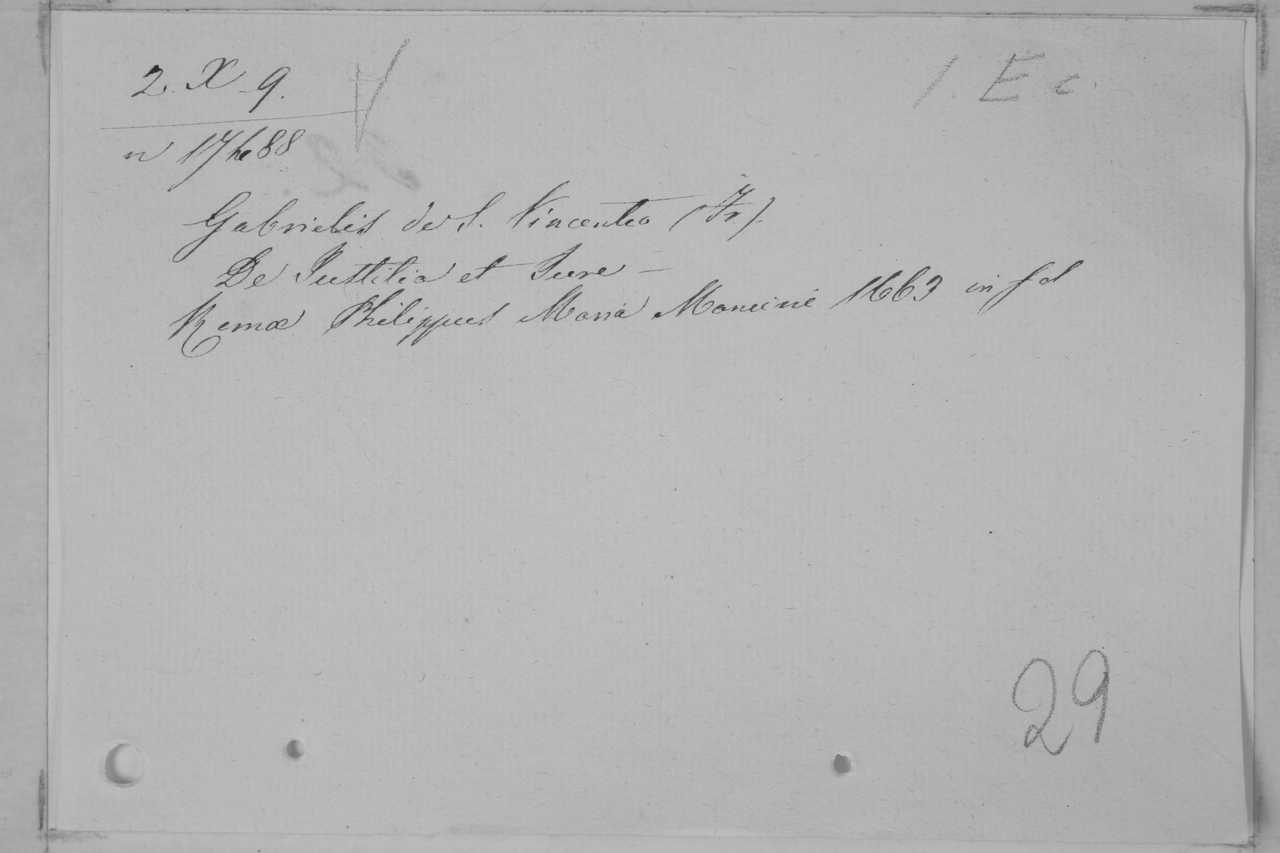 2. X 9.
1. E c.
Gabrielis de S. Vincentio (Fr).
De Justitia et Jure —
Romæ Philippus Maria Mancini 1663 in fol
29